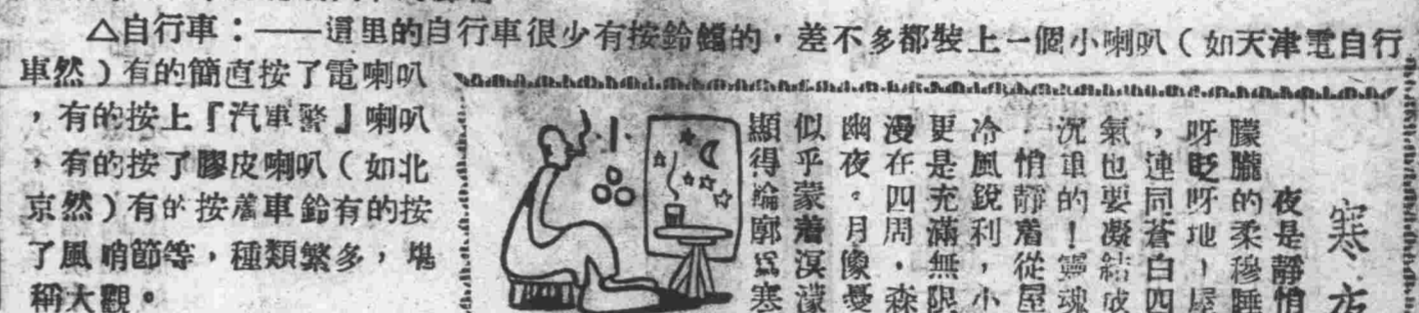 △自行車：——這里的自行車很少有按鈴鐺的，差不多都裝上一個小喇叭（如天津電自行
車然）有的簡直按了電喇叭
，有的按上『汽車警』喇叭
，有的按了膠皮喇叭（如北
京然）有的按舊車鈴有的按
了風哨節等，種類繁多，堪
稱大觀。
寒夜
夜是靜悄
朦朧的柔穆睡
呀眨呀地，屋
，連同蒼白四
氣也要凝結成
沉重的！靈魂
．悄靜着從屋
冷風銳利，小
更是充滿無限
漫在四周，森
幽夜。月像憂
似乎蒙着溟濛
顯得輪廓爲寒